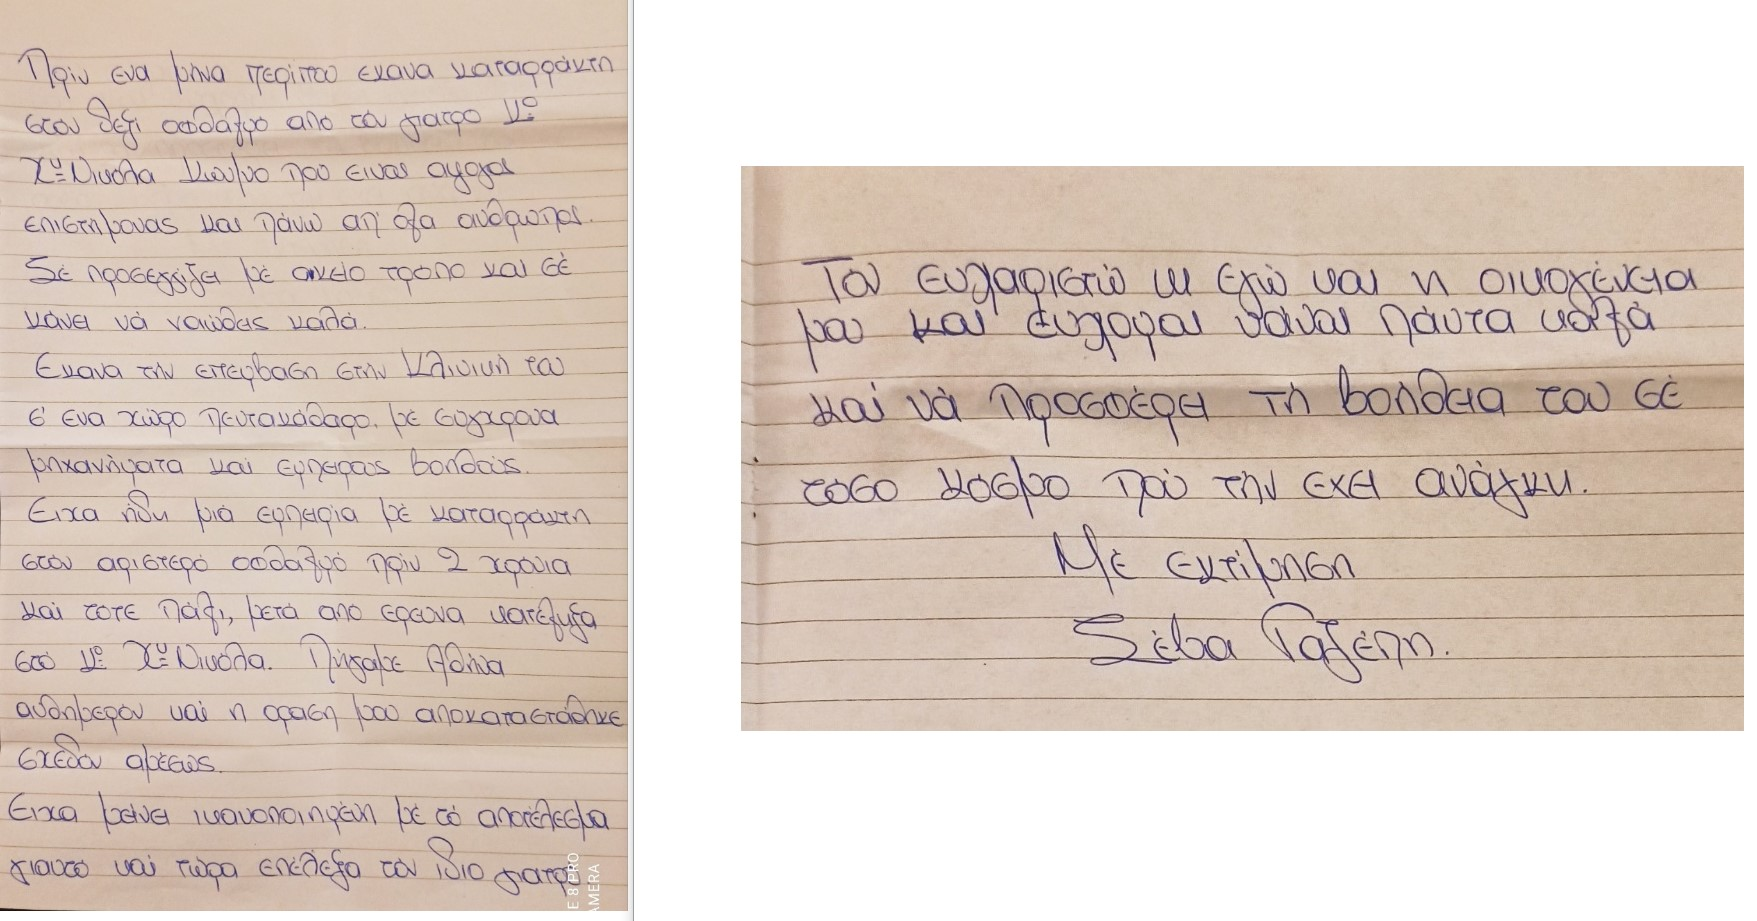 Πριν ενα μήνα περίπου εκανα καταρράκτη
στον δεξί οφθαλμό απο τον γιατρο κο
Χ'' Νικόλα που ειναι αψογος
επιστήμονας και πάνω απ' ολα ανθρωπος.
Σέ προσεγγίζει μέ οικείο τρόπο και σέ
κάνει νά νοιώθεις καλά.
Εκανα την επεμβαση στην Κλινική του
σ' ενα χώρο πεντακάθαρο, μέ συγχρονα
μηχανήματα και εμπειρους βοηθούς.
Ειχα ήδη μιά εμπειρία μέ καταρράκτη
στον αριστερό οφθαλμό πρίν 2 χρόνια
και τοτε πάλι, μετά απο ερευνα κατέληξα
στό κο Χ'' Νικόλα. Πήγαμε Αθήνα
αυθημερόν καί η οραση μου αποκαταστάθηκε
σχεδόν αμέσως.
Ειχα μείνει ικανοποιημένη μέ τό αποτέλεσμα
γιαυτό καί τώρα επέλεξα τόν ίδιο γιατρό.
Τον ευχαριστώ κι εγώ και η οικογένεια
μου και ευχομαι νάναι πάντα καλά
καί νά προσφέρει τή βοήθεια του σέ
τοσο κοσμο πού την εχει ανάγκη.
Μέ εκτίμηση
Σέβα
E 8 PRO
AMERA